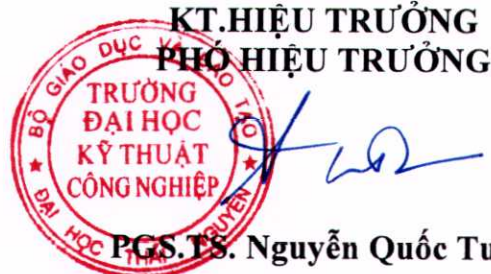 KT.HIỆU TRƯỞNG
PHÓ HIỆU TRƯỞNG
BỘ GIÁO DỤC VÀ ĐÀO TẠO
TRƯỜNG
ĐẠI HỌC
KỸ THUẬT
CÔNG NGHIỆP
ĐẠI HỌC THÁI NGUYÊN
PGS.TS. Nguyễn Quốc Tu